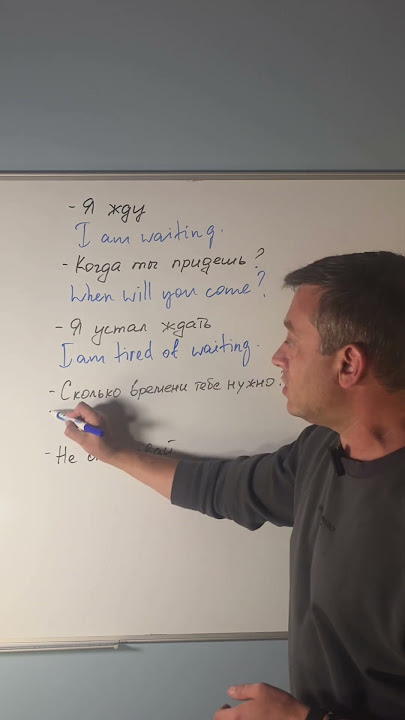 - Я жду
I am waiting.
- Когда ты придешь?
When will you come?
- Я устал ждать
I am tired of waiting.
- Сколько времени тебе нужно
- Не